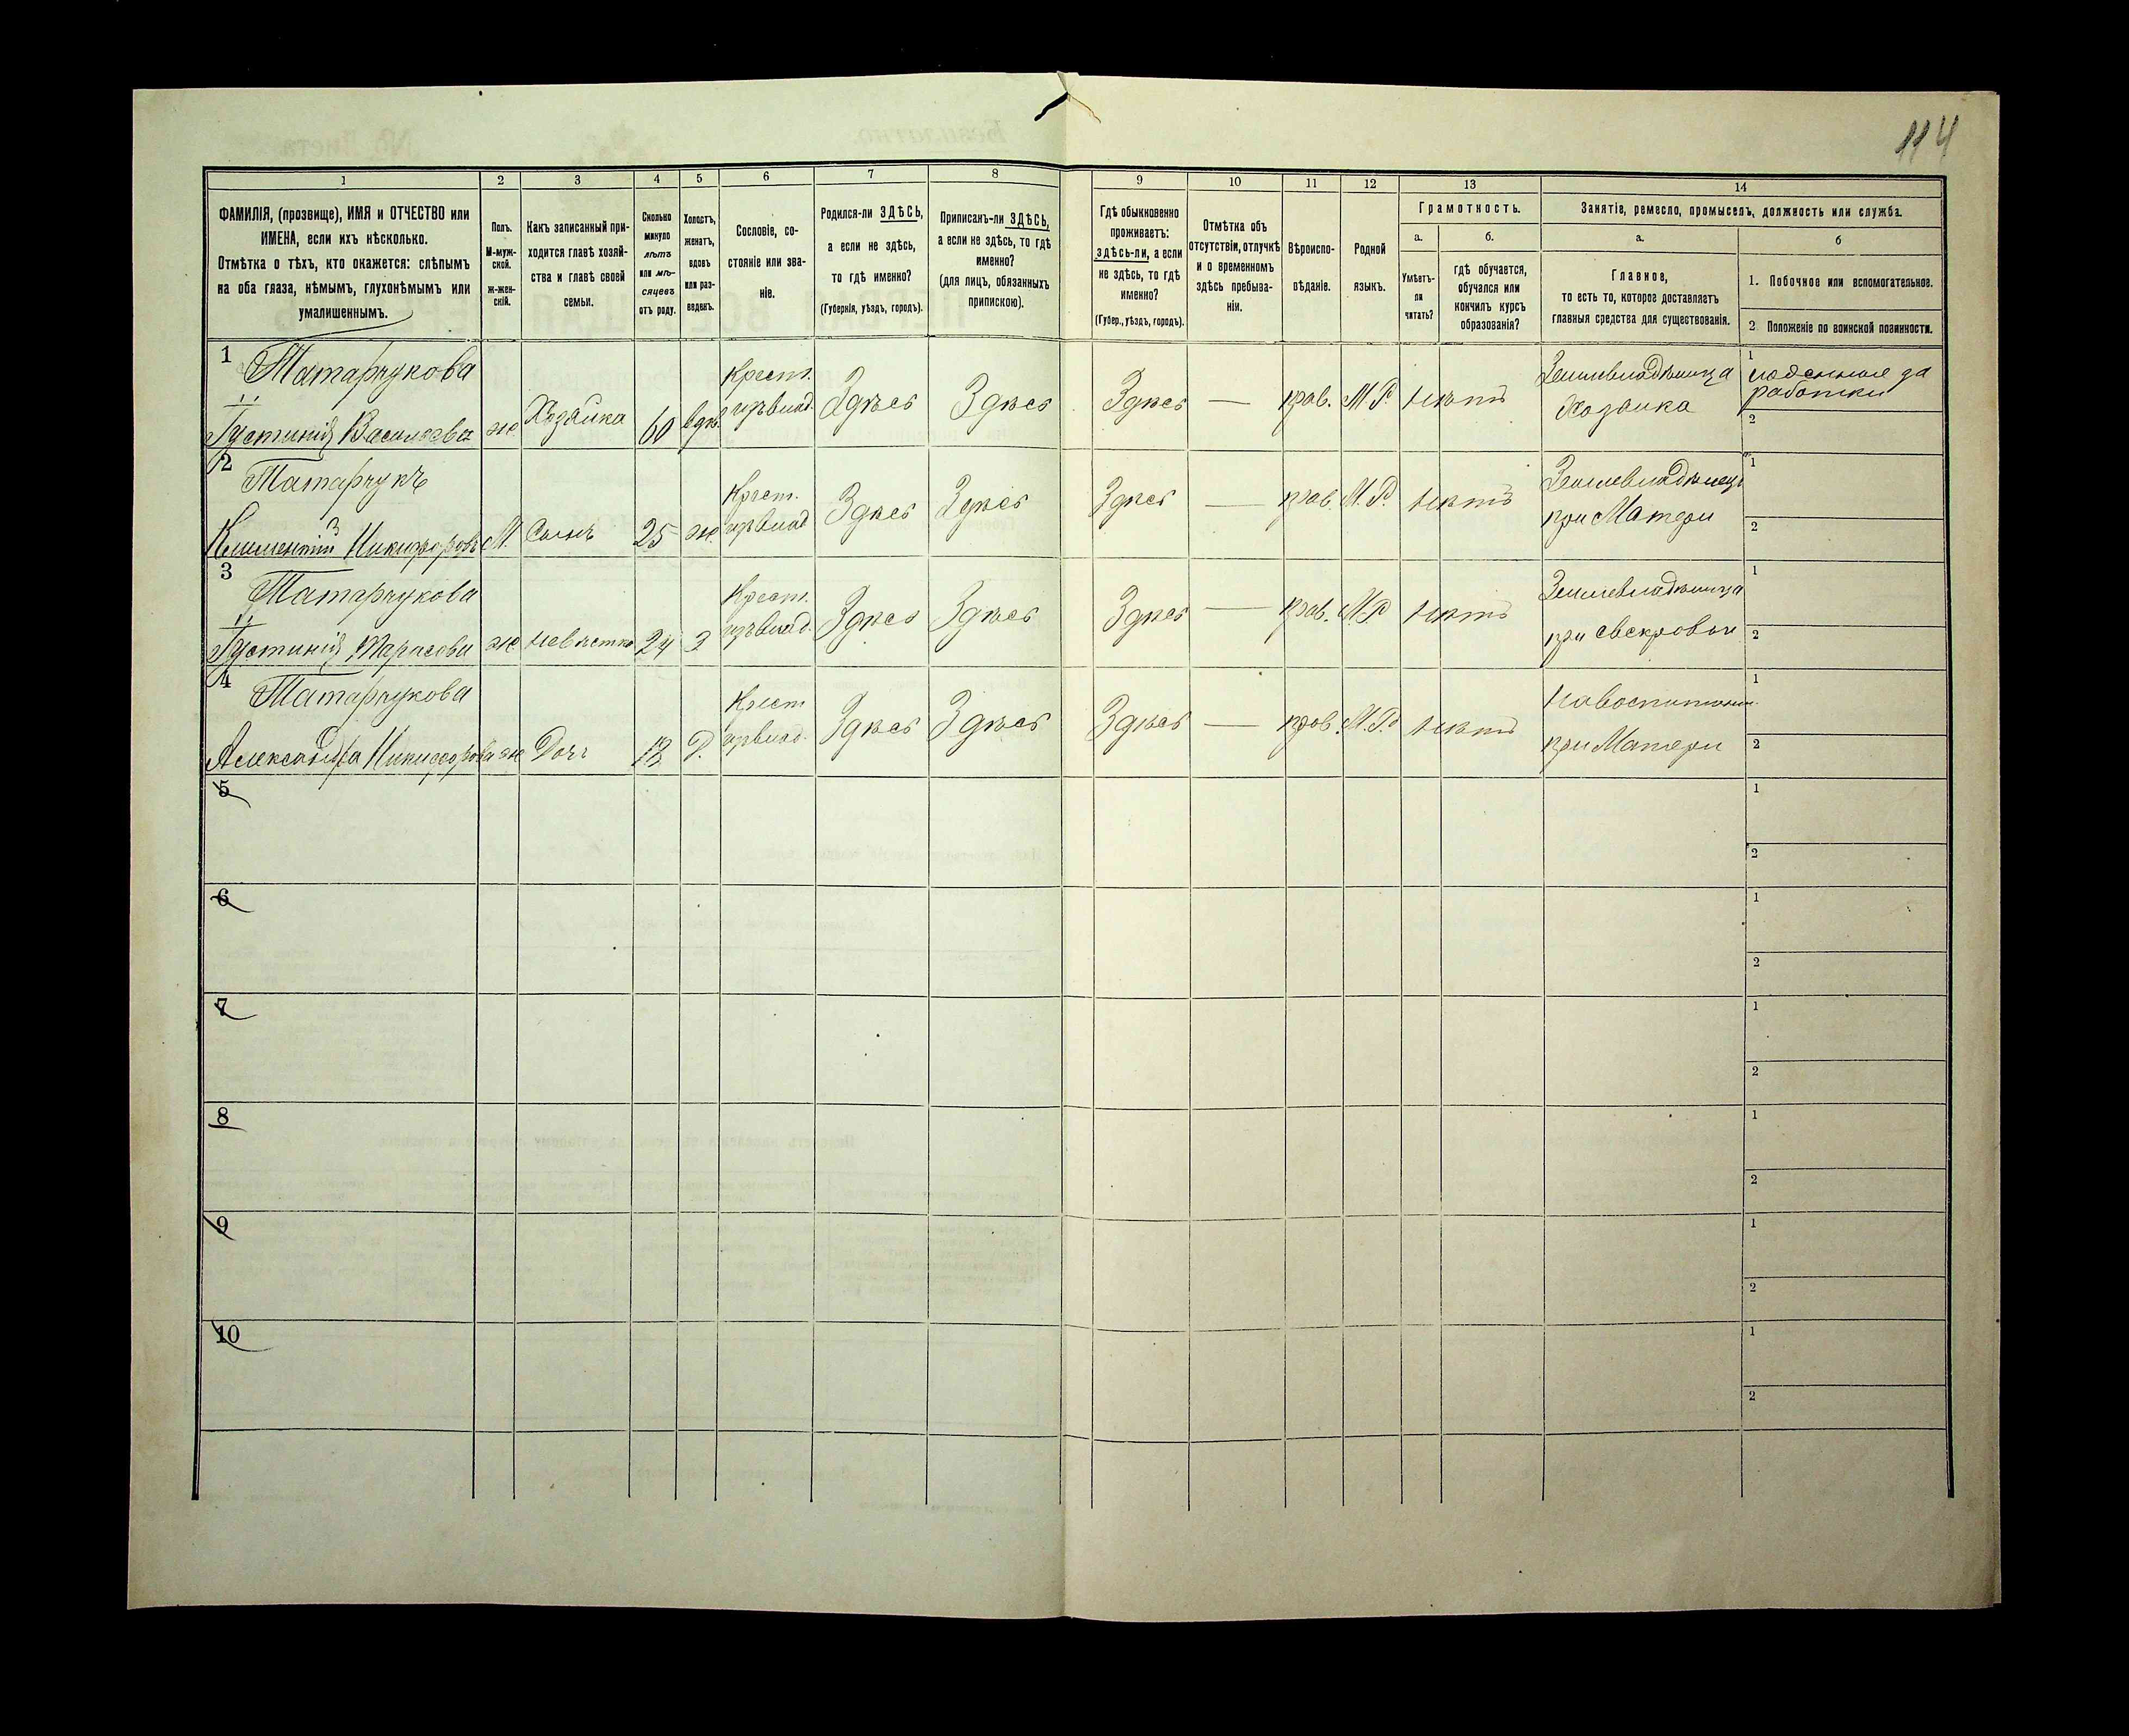 114
1 2 3 4 5 6 7 8 9 10 11 12 13 14
ФАМИЛІЯ, (прозвище), ИМЯ и ОТЧЕСТВО или
ИМЕНА, если ихъ нѣсколько.
Отмѣтка о тѣхъ, кто окажется: слѣпымъ
на оба глаза, нѣмымъ, глухонѣмымъ или
умалишеннымъ.
Полъ.
М-муж-
ской.
ж-жен-
скій.
Какъ записанный при-
ходится главѣ хозяй-
ства и главѣ своей
семьи.
Сколько
минуло
лѣтъ
или мѣ-
сяцевъ
отъ роду.
Холостъ,
женатъ,
вдовъ
или раз-
веденъ.
Сословіе, со-
стояніе или зва-
ніе.
Родился-ли ЗДѢСЬ,
а если не здѣсь,
то гдѣ именно?
(Губернія, уѣздъ, городъ).
Приписанъ-ли ЗДѢСЬ,
а если не здѣсь, то гдѣ
именно?
(для лицъ, обязанныхъ
припискою).
Гдѣ обыкновенно
проживаетъ:
здѣсь-ли, а если
не здѣсь, то гдѣ
именно?
(Губер., уѣздъ, городъ).
Отмѣтка объ
отсутствіи, отлучкѣ
и о временномъ
здѣсь пребыва-
ніи.
Вѣроиспо-
вѣданіе.
Родной
языкъ.
Грамотность.
а.
Умѣетъ-
ли
читать?
б.
гдѣ обучается,
обучался или
кончилъ курсъ
образованія?
Занятіе, ремесло, промыселъ, должность или служба.
а.
Главное,
то есть то, которое доставляетъ
главныя средства для существованія.
б
1. Побочное или вспомогательное.
2 Положеніе по воинской повинности.
1 Татарчукова Крест. Землевладѣлица 1 поденные за
работки
Іустинія Васильева ж Хозяйка 60 вдв. Здѣсь Здѣсь Здѣсь — прав. М Р. нѣтъ Хозяйка 2
2 Татарчукъ Крест. Землевладѣлецъ 1
Климентій Никифоровъ М. Сынъ 25 ж. Здѣсь Здѣсь Здѣсь — прав. М. Р. нѣтъ при Матери 2
3 Татарчукова Крест. Землевладѣлица 1
Іустинія Тарасова ж невѣстка 24 З Здѣсь Здѣсь Здѣсь — прав. М.Р нѣтъ при свекрови 2
4 Татарчукова Крест 1
Александра Никифорова ж Дочь 18 Д. Здѣсь Здѣсь Здѣсь — прав. М.Р. нѣтъ при Матери 2
5 1
2
6 1
2
7 1
2
8 1
2
9 1
2
10 1
2